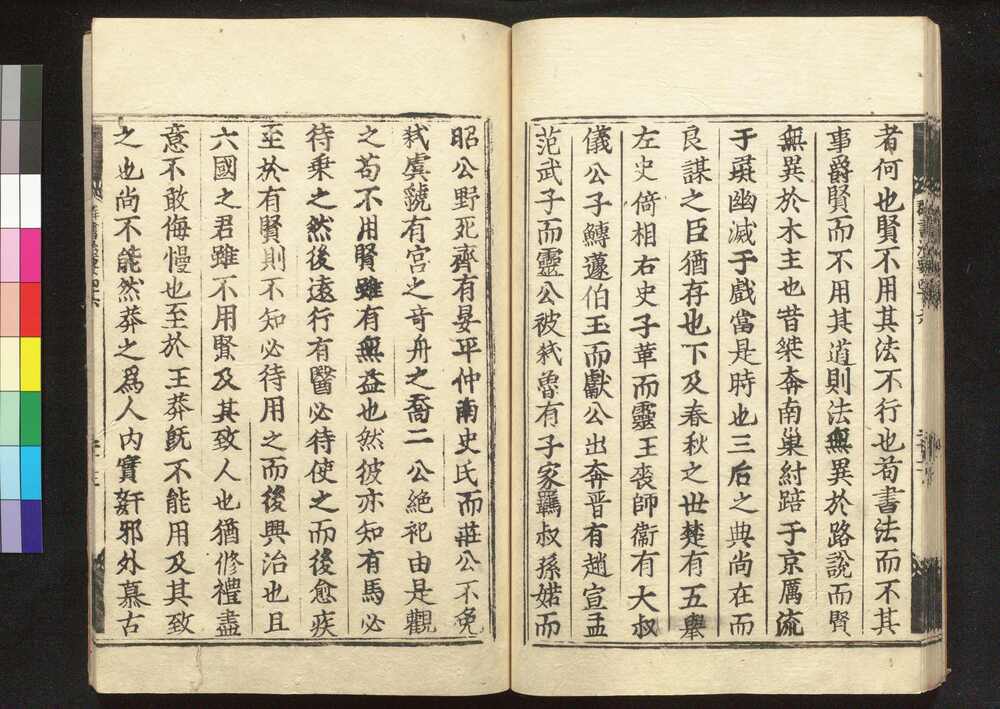 者何也賢不用其法不行也苟書法而不其
事爵賢而不用其道則法無異於路說而賢
無異於木主也昔桀奔南巢紂踣于京厲流
于彘幽滅于戲當是時也三后之典尚在而
良謀之臣猶存也下及春秋之世楚有五舉
左史倚相右史子革而靈王喪師衛有大叔
儀公子鱄蘧伯玉而獻公出奔晉有趙宣孟
范武子而靈公被弒魯有子家羈叔孫婼而
昭公野死齊有晏平仲南史氏而莊公不免
弒虞虢有宮之奇舟之喬二公絕祀由是觀
之苟不用賢雖有無益也然彼亦知有馬必
待乗之然後遠行有醫必待使之而後愈疾
至於有賢則不知必待用之而後興治也且
六國之君雖不用賢及其致人也猶修禮盡
意不敢侮慢也至於王莽旣不能用及其致
之也尚不能然莽之爲人內實姧邪外慕古
群書治要四十六